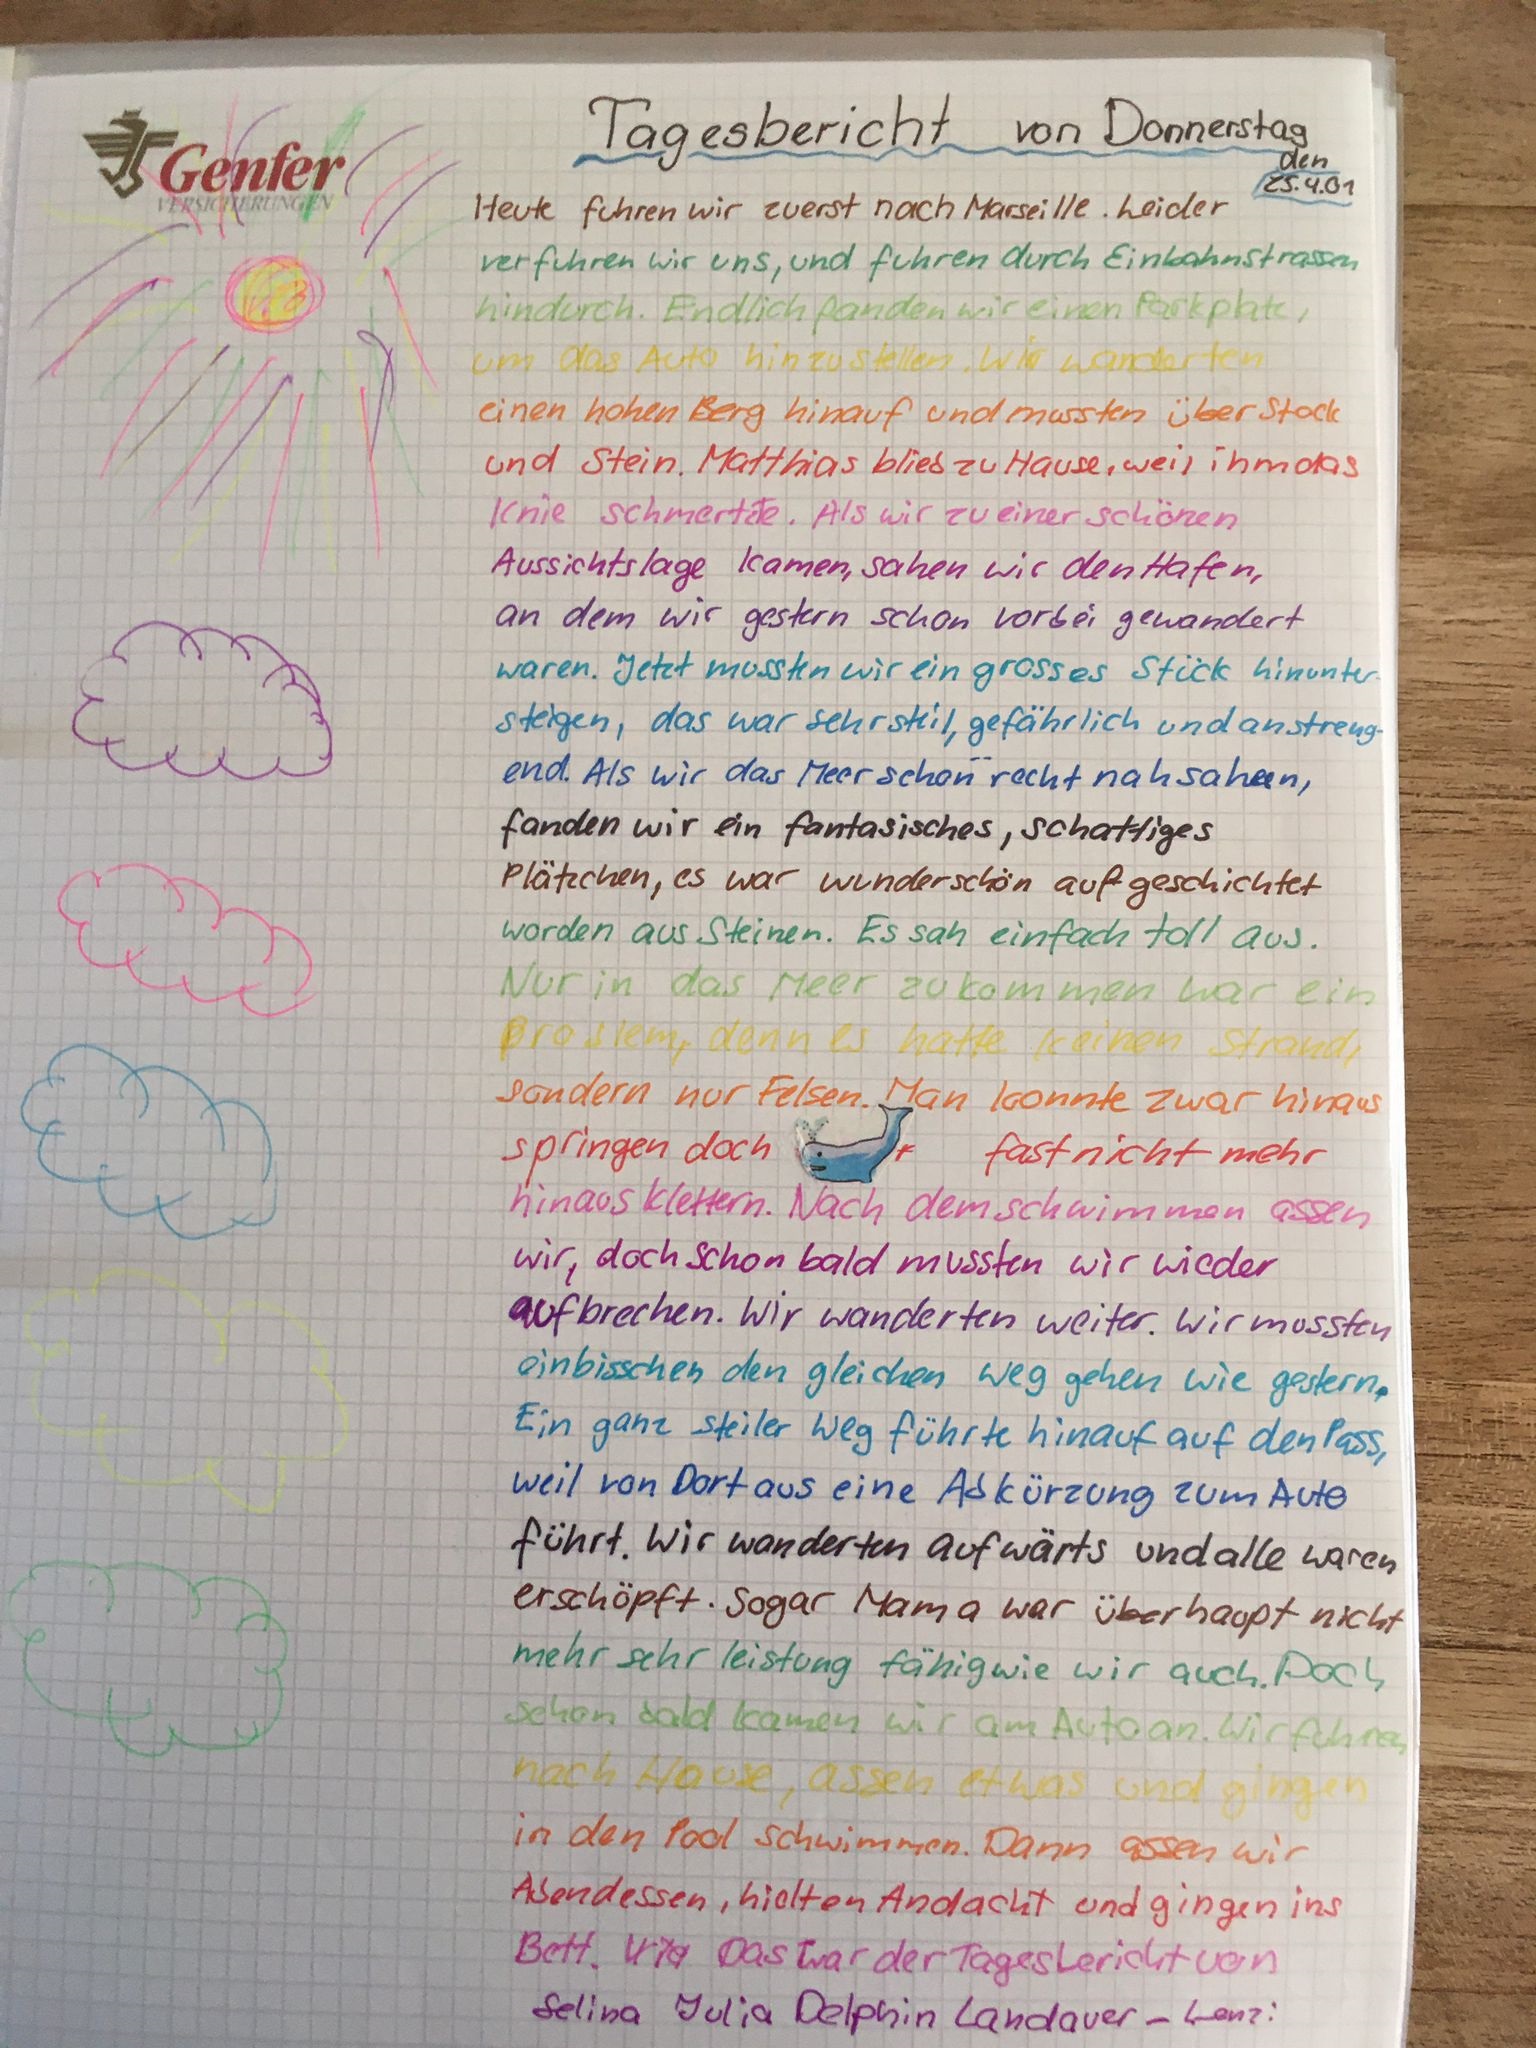 Genfer
VERSICHERUNGEN
Tagesbericht von Donnerstag
den
25.4.01
Heute fuhren wir zuerst nach Marseille. Leider
verfuhren wir uns, und fuhren durch Einbahnstrassen
hindurch. Endlich fanden wir einen Parkplatz,
um das Auto hinzustellen. Wir wanderten
einen hohen Berg hinauf und mussten über Stock
und Stein. Matthias blieb zu Hause, weil ihm das
Knie schmertzte. Als wir zu einer schönen
Aussichtslage kamen, sahen wir den Hafen,
an dem wir gestern schon vorbei gewandert
waren. Jetzt mussten wir ein grosses Stück hinunter-
steigen, das war sehr steil, gefährlich und anstreng-
end. Als wir das Meer schon recht nah sahen,
fanden wir ein fantasisches, schattiges
Plätzchen, es war wunderschön aufgeschichtet
worden aus Steinen. Es sah einfach toll aus.
Nur in das Meer zu kommen war ein
Problem, denn es hatte keinen Strand,
sondern nur Felsen. Man konnte zwar hinaus
springen doch fast nicht mehr
hinaus klettern. Nach dem schwimmen assen
wir, doch schon bald mussten wir wieder
aufbrechen. Wir wanderten weiter. Wir mussten
einbisschen den gleichen Weg gehen wie gestern.
Ein ganz steiler Weg führte hinauf auf den Pass,
weil von Dort aus eine Abkürzung zum Auto
führt. Wir wanderten aufwärts und alle waren
erschöpft. Sogar Mama war überhaupt nicht
mehr sehr leistung fähig wie wir auch. Doch
schon bald kamen wir am Auto an. Wir fuhren
nach Hause, assen etwas und gingen
in den Pool schwimmen. Dann assen wir
Abendessen, hielten Andacht und gingen ins
Bett. Das war der Tagesbericht von
Selina Julia Delphin Landauer - Lenzi